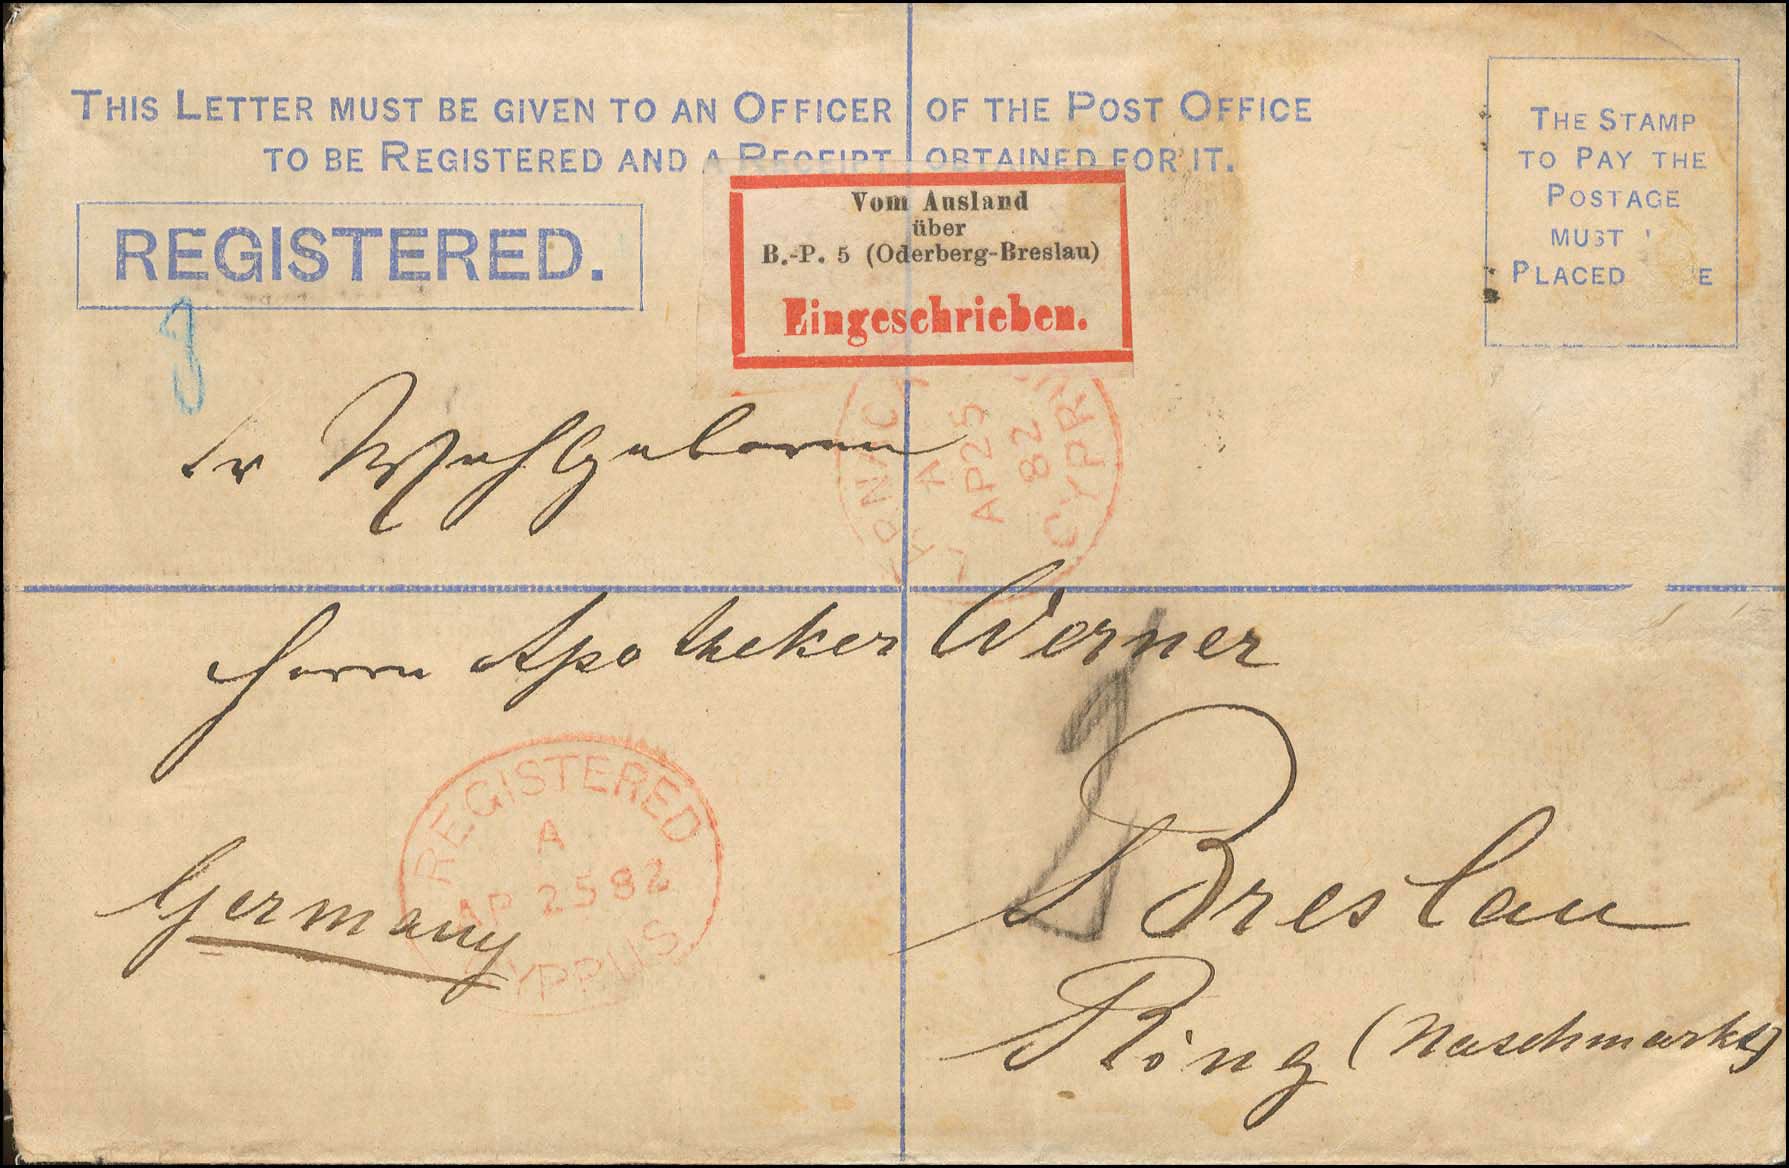 THIS LETTER MUST BE GIVEN TO AN OFFICER OF THE POST OFFICE
TO BE REGISTERED AND A RECEIPT OBTAINED FOR IT.
THE STAMP
TO PAY THE
POSTAGE
MUST
PLACED E
REGISTERED.
Vom Ausland
über
B.-P. 5 (Oderberg-Breslau)
Eingeschrieben.
A
AP 25
82
CYPR
Sr Wohlgeboren
Herrn Apotheker Werner
REGISTERED
A
AP 25 82
CYPRUS
Germany
Breslau
Ring (Naschmarkt)